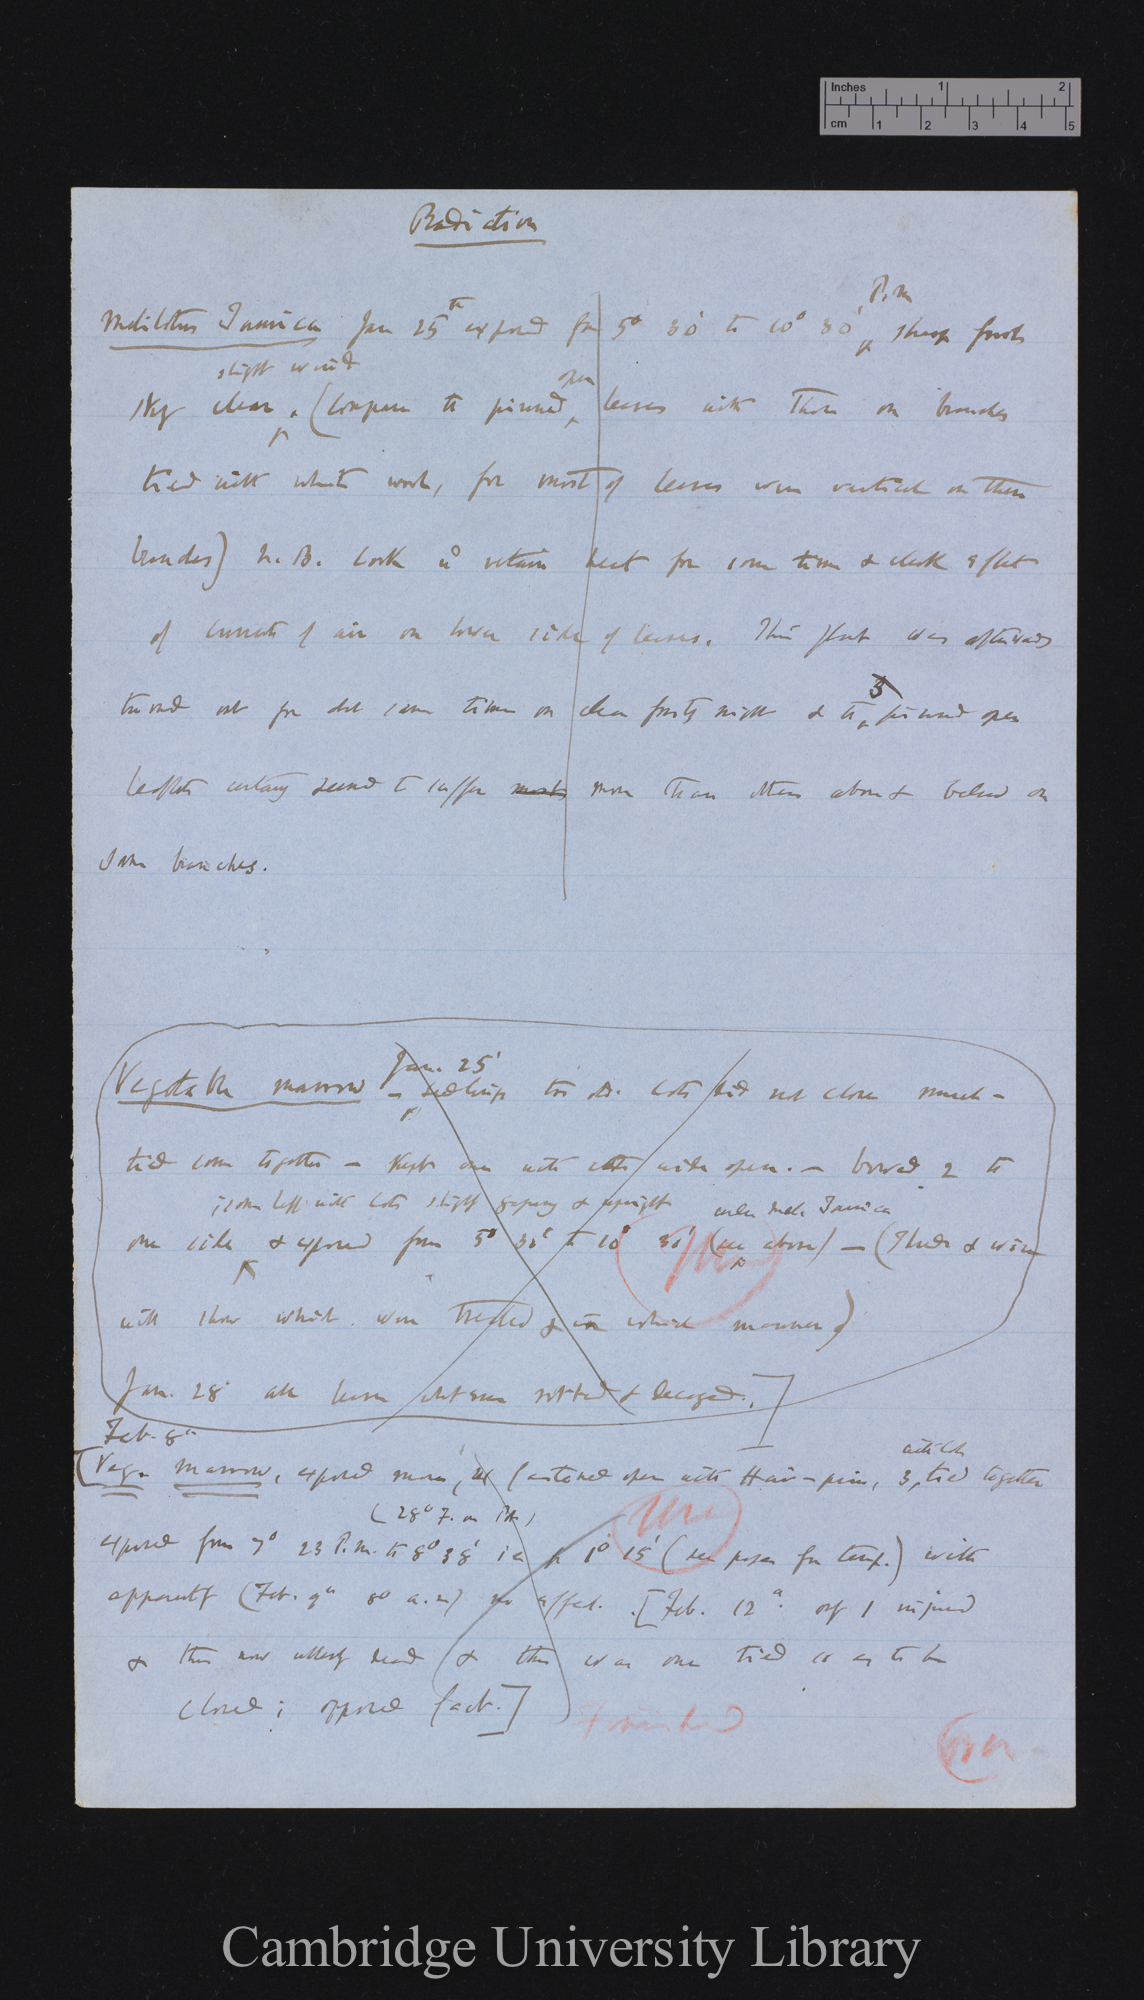 Inches 1 2
cm 1 2 3 4 5
Radiation
P.m
Melilotus Taurica Jan 25th exposed for 5° 30' to 10° 30' sharp frost
slight wind
open
sky clear, (Compare the pinned leaves with those on branches
tied with white wool, for most of leaves were vertical on these
branches) N.B. Cork will retain heat for some time & check effect
of currents of air on lower side of leaves. This plant was afterwards
3
turned out for some time on clear frosty night & the pinned open
leaflets certainly seemed to suffer more than others above & below on
same branches.
Jan. 25'
Vegetable marrow – seedlings cots did not close much –
tied some together – kept some with cots wide open. – bowed 2 to
; some left with cots slightly gaping & upright
under Melil. Taurica
one side & exposed from 5° 30' to 10° 30' (see above) – (Threads & wire
will show which were treated & in which manner)
Jan. 28' all been rotted & decayed.]
Feb. 8th
with cots
[Veg. marrow, exposed more, 4 fastened open with Hair-pins, 3 tied together
(28° F. on )
exposed from 7° 23 P.m. to 8° 38' ie for 1° 15' (see paper for temp.) with
apparently (Feb. 9th 8° a.m) no effect. [Feb. 12th. only 1 injured
& this now utterly dead & this was one tied so as to be
closed; opposed fact.]
Finished
over
Cambridge University Library